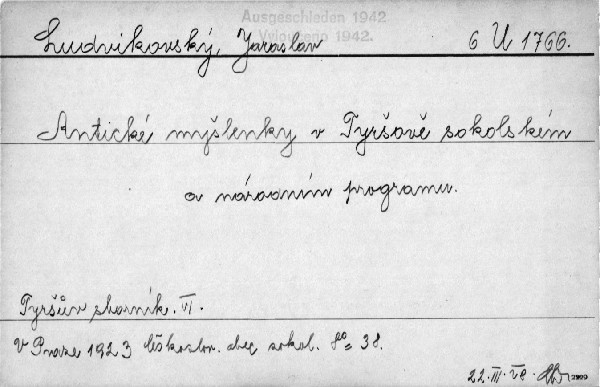 Ausgeschieden 1942
Vyloučeno 1942.
Ludvikovský, Jaroslav 6 U 1766.
Antické myšlenky v Tyršově sokolském
a národním programu.
Tyršův sborník. VI.
V Praze 1923 Českoslov. obec sokol. 8° 38.
22. III.